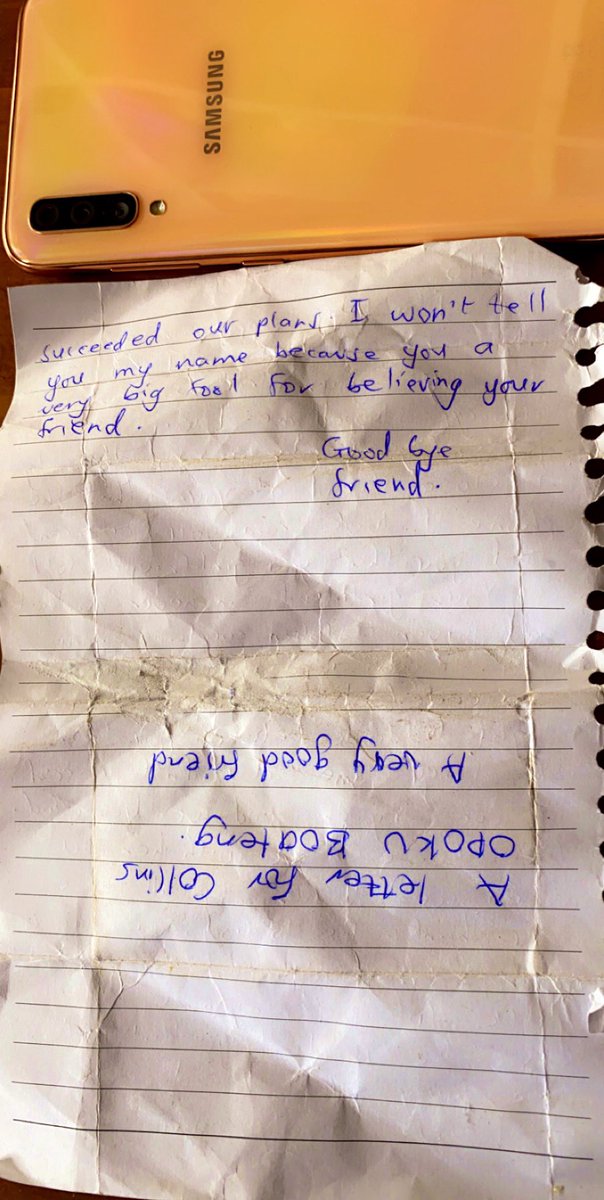 SAMSUNG
succeeded our plans. I won't tell
you my name because you a
very big fool for believing your
friend.
Good bye
friend.
A letter for Collins
OPOKU Boateng.
A very good friend